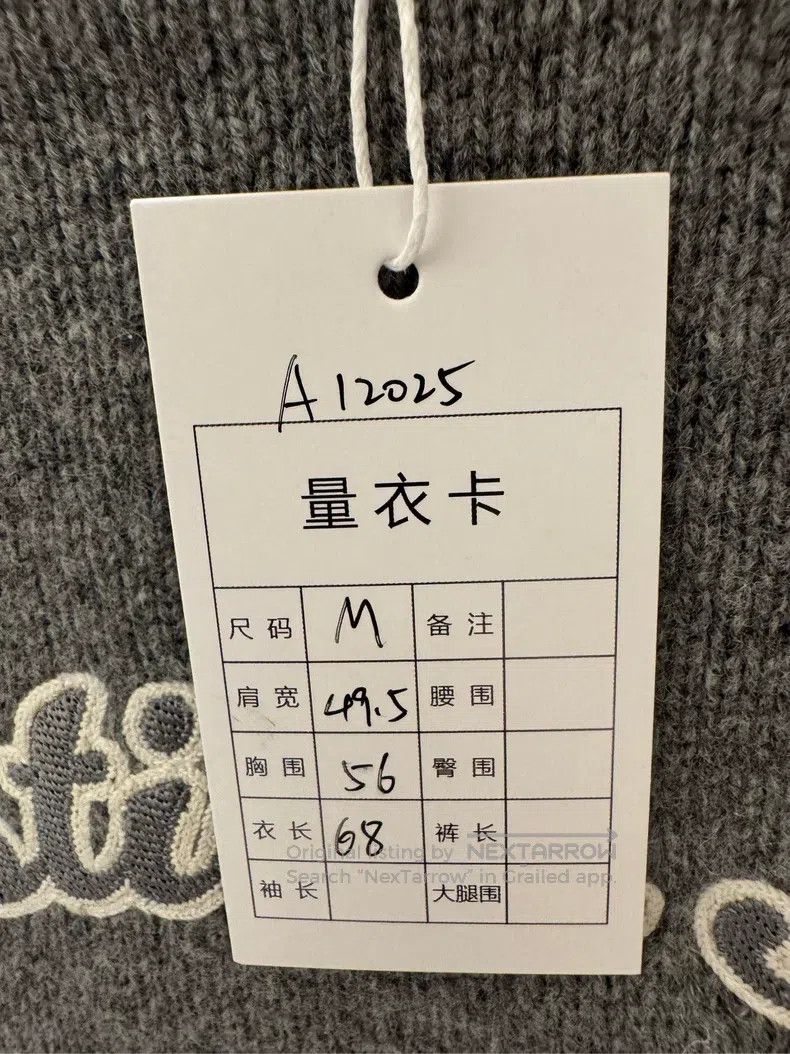 A12025
量衣卡
尺码 M 备注
肩宽 49.5 腰围
胸围 56 臀围
衣长 68 裤长
Original listing by NEXTARROW
Search "NexTarrow" in Grailed app.
袖长 大腿围